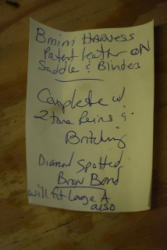 Bmini Harness
Patent leather ON
Saddle & Blinders
Complete w/
2 tone Reins &
Britching
Diamond Spotted
Brow Band
will fit Large A
also